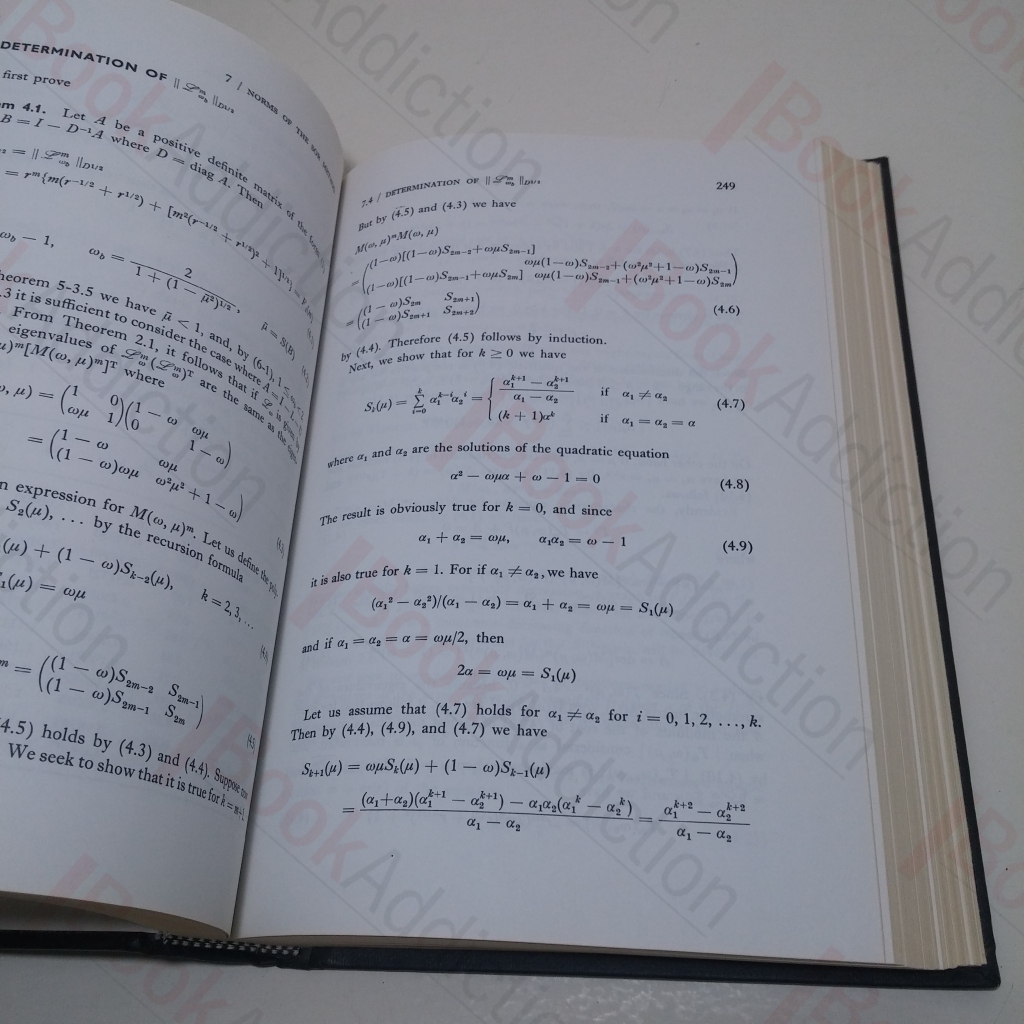 DETERMINATION OF || ℒ^m_{ω_b} ||_{D^{1/2}}
7 / NORMS OF THE SOR METHOD
first prove
m 4.1. Let A be a positive definite matrix of the form
B = I − D⁻¹A where D = diag A. Then
= || ℒ^m_{ω_b} ||_{D^{1/2}}
= r^m{m(r^{-1/2} + r^{1/2}) + [m²(r^{-1/2} + r^{1/2})² + 1]^{1/2}}
ω_b − 1, ω_b = 2 / (1 + (1 − μ̄²)^{1/2}), μ̄ = S(B)
heorem 5-3.5 we have μ̄ < 1, and, by (6-1), 1
.3 it is sufficient to consider the case where A =
From Theorem 2.1, it follows that if ℒ_ω is given by
eigenvalues of ℒ^m_ω(ℒ^m_ω)^T are the same as the
μ)^m[M(ω, μ)^m]^T where
ω, μ) = (1 0; ωμ 1)(1 − ω ωμ; 0 1 − ω)
= (1 − ω ωμ; (1 − ω)ωμ ω²μ² + 1 − ω)
n expression for M(ω, μ)^m. Let us define the
S₂(μ), ... by the recursion formula
(μ) + (1 − ω)S_{k−2}(μ), k = 2, 3, ...
₁(μ) = ωμ
m = ((1 − ω)S_{2m−2} S_{2m−1}; (1 − ω)S_{2m−1} S_{2m})
4.5) holds by (4.3) and (4.4). Suppose
We seek to show that it is true for k = m + 1.
7.4 / DETERMINATION OF || ℒ^m_{ω_b} ||_{D^{1/2}} 249
But by (4.5) and (4.3) we have
M(ω, μ)^m M(ω, μ)
= ((1−ω)[(1−ω)S_{2m−2}+ωμS_{2m−1}] ωμ(1−ω)S_{2m−2}+(ω²μ²+1−ω)S_{2m−1}
(1−ω)[(1−ω)S_{2m−1}+ωμS_{2m}] ωμ(1−ω)S_{2m−1}+(ω²μ²+1−ω)S_{2m})
= ((1 − ω)S_{2m} S_{2m+1}
(1 − ω)S_{2m+1} S_{2m+2}) (4.6)
by (4.4). Therefore (4.5) follows by induction.
Next, we show that for k ≥ 0 we have
S_k(μ) = ∑_{i=0}^{k} α₁^{k−i}α₂^i = { (α₁^{k+1} − α₂^{k+1}) / (α₁ − α₂) if α₁ ≠ α₂
(k + 1)α^k if α₁ = α₂ = α (4.7)
where α₁ and α₂ are the solutions of the quadratic equation
α² − ωμα + ω − 1 = 0 (4.8)
The result is obviously true for k = 0, and since
α₁ + α₂ = ωμ, α₁α₂ = ω − 1 (4.9)
it is also true for k = 1. For if α₁ ≠ α₂, we have
(α₁² − α₂²)/(α₁ − α₂) = α₁ + α₂ = ωμ = S₁(μ)
and if α₁ = α₂ = α = ωμ/2, then
2α = ωμ = S₁(μ)
Let us assume that (4.7) holds for α₁ ≠ α₂ for i = 0, 1, 2, ..., k.
Then by (4.4), (4.9), and (4.7) we have
S_{k+1}(μ) = ωμS_k(μ) + (1 − ω)S_{k−1}(μ)
= ((α₁+α₂)(α₁^{k+1} − α₂^{k+1}) − α₁α₂(α₁^k − α₂^k)) / (α₁ − α₂) = (α₁^{k+2} − α₂^{k+2}) / (α₁ − α₂)
BookAddiction